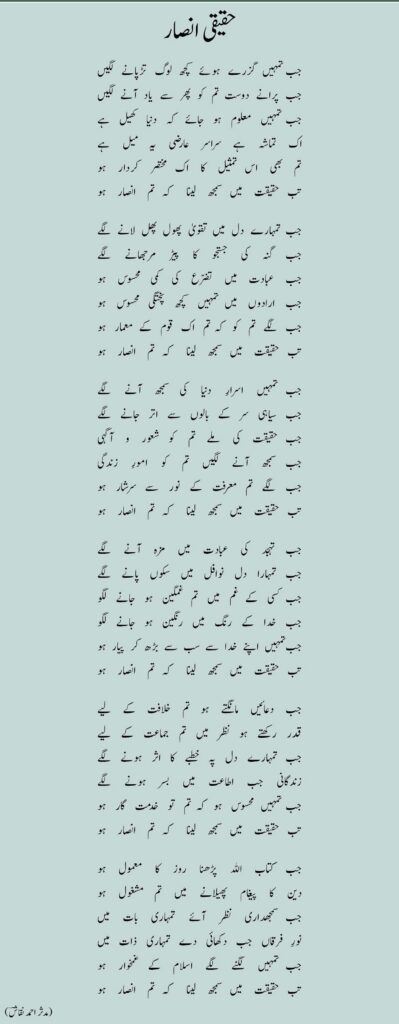 حقیقی انصار
جب تمہیں گزرے ہوئے کچھ لوگ تڑپانے لگیں
جب پرانے دوست تم کو پھر سے یاد آنے لگیں
جب تمہیں معلوم ہو جائے کہ دنیا کھیل ہے
اک تماشہ ہے سراسر عارضی یہ میل ہے
تم بھی اس تمثیل کا اک مختصر کردار ہو
تب حقیقت میں سمجھ لینا کہ تم انصار ہو
جب تمہارے دل میں تقویٰ پھول پھل لانے لگے
جب گنہ کی جستجو کا پیڑ مرجھانے لگے
جب عبادت میں تضرّع کی کمی محسوس ہو
جب ارادوں میں تمہیں کچھ پختگی محسوس ہو
جب لگے تم کو کہ تم اک قوم کے معمار ہو
تب حقیقت میں سمجھ لینا کہ تم انصار ہو
جب تمہیں اسرارِ دنیا کی سمجھ آنے لگے
جب سیاہی سر کے بالوں سے اتر جانے لگے
جب حقیقت کی ملے تم کو شعور و آگہی
جب سمجھ آنے لگیں تم کو امورِ زندگی
جب لگے تم معرفت کے نور سے سرشار ہو
تب حقیقت میں سمجھ لینا کہ تم انصار ہو
جب تہجد کی عبادت میں مزہ آنے لگے
جب تمہارا دل نوافل میں سکوں پانے لگے
جب کسی کے غم میں تم غمگین ہو جانے لگو
جب خدا کے رنگ میں رنگین ہو جانے لگو
جب تمہیں اپنے خدا سے سب سے بڑھ کر پیار ہو
تب حقیقت میں سمجھ لینا کہ تم انصار ہو
جب دعائیں مانگتے ہو تم خلافت کے لیے
قدر رکھتے ہو نظر میں تم جماعت کے لیے
جب تمہارے دل پہ خطبے کا اثر ہونے لگے
زندگانی جب اطاعت میں بسر ہونے لگے
جب تمہیں محسوس ہو کہ تم تو خدمت گار ہو
تب حقیقت میں سمجھ لینا کہ تم انصار ہو
جب کتاب اللہ پڑھنا روز کا معمول ہو
دین کا پیغام پھیلانے میں تم مشغول ہو
جب سمجھداری نظر آئے تمہاری بات میں
نورِ فرقاں جب دکھائی دے تمہاری ذات میں
جب تمہیں لگنے لگے اسلام کے غمخوار ہو
تب حقیقت میں سمجھ لینا کہ تم انصار ہو
(مدثر احمد نقاش)